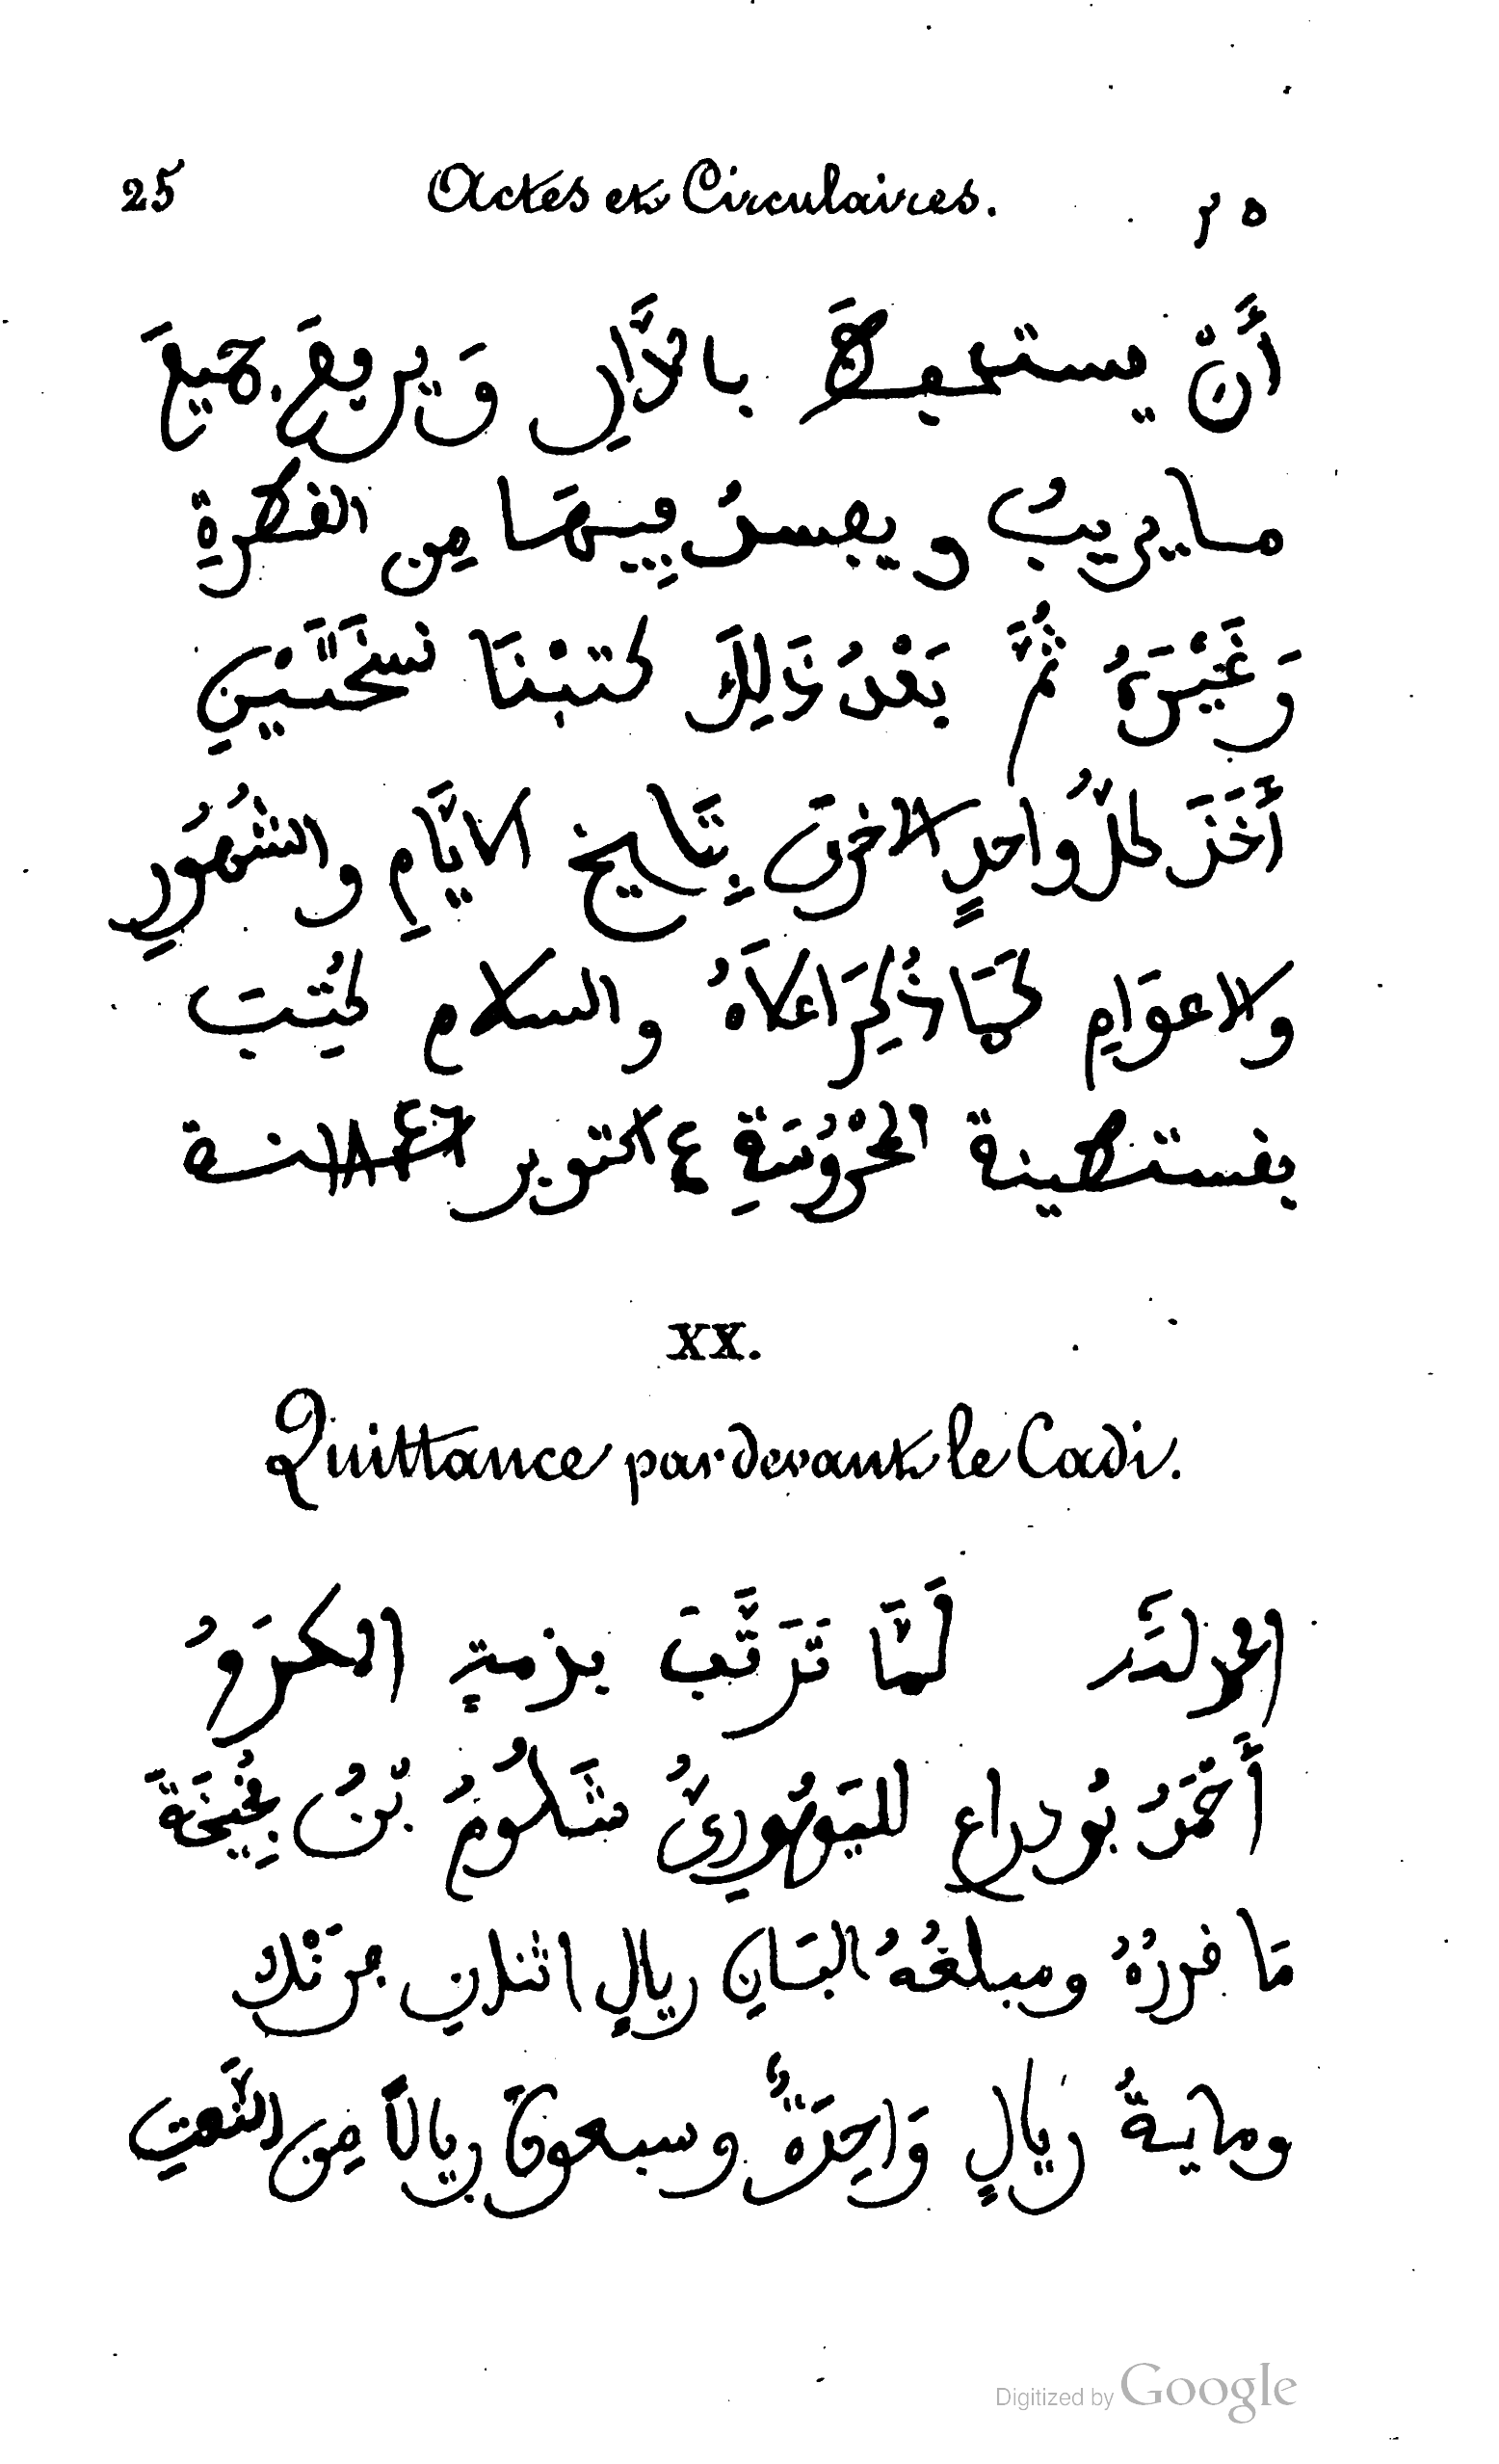 25 Actes et Circulaires. ٢٥
أَنّ يستحفظَ بالدَّارِ وَيرفعَ جميعَ
ما يريبُ ويفسدُ فِيهَا مِن الفكرةِ
وَغَيْرَهُ ثُمَّ بَعْدُ ذَلِكَ كتبْنَا نسخَتَيْنِ
أَخَذَ كلُّ وَاحدٍ الاخرَى بِتَاريخ الايَّامِ والشُهُورِ
والاعوَامِ والسلام كُتِبَ
بقسنطينة المحْرُوسَةِ ٤ اكتوبر ١٨٤٦ سنة
XX.
Quittance par devant le Cadi.
الحمد للَّه لَمَّا تَرَتَّبَ بذمةِ المكرَمُ
أَحْمَدُ بُودراع لليَهُودِيُّ شَلُومُ بْنُ
مَا قدرُهُ ومبلغُهُ الفَانِ ريالٍ اثنانِ فرَنْك
ومايةُ رِيَالٍ وَاحِدَةٌ وسبعونَ ريالاً مِن
Digitized by Google